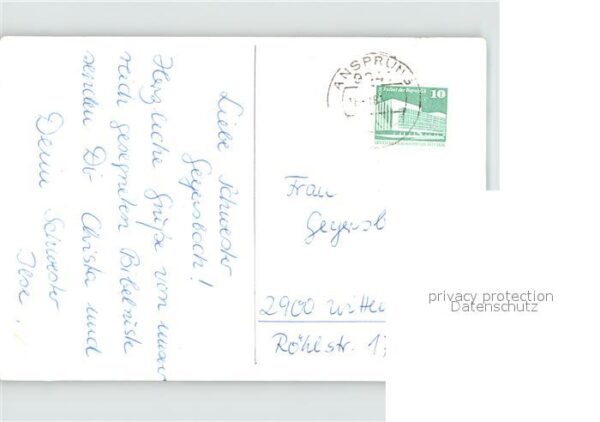 Liebe Schwester
Gegersbach!
Herzliche Grüße von unser
reich gesegneten Bibelrüste
senden Dir Christa und
Deine Schwester
Ilse.
ANSPRUNG
Palast der Republik
10
Frau
Gegersb
2900 Witte
Röhlstr. 13
privacy protection
Datenschutz